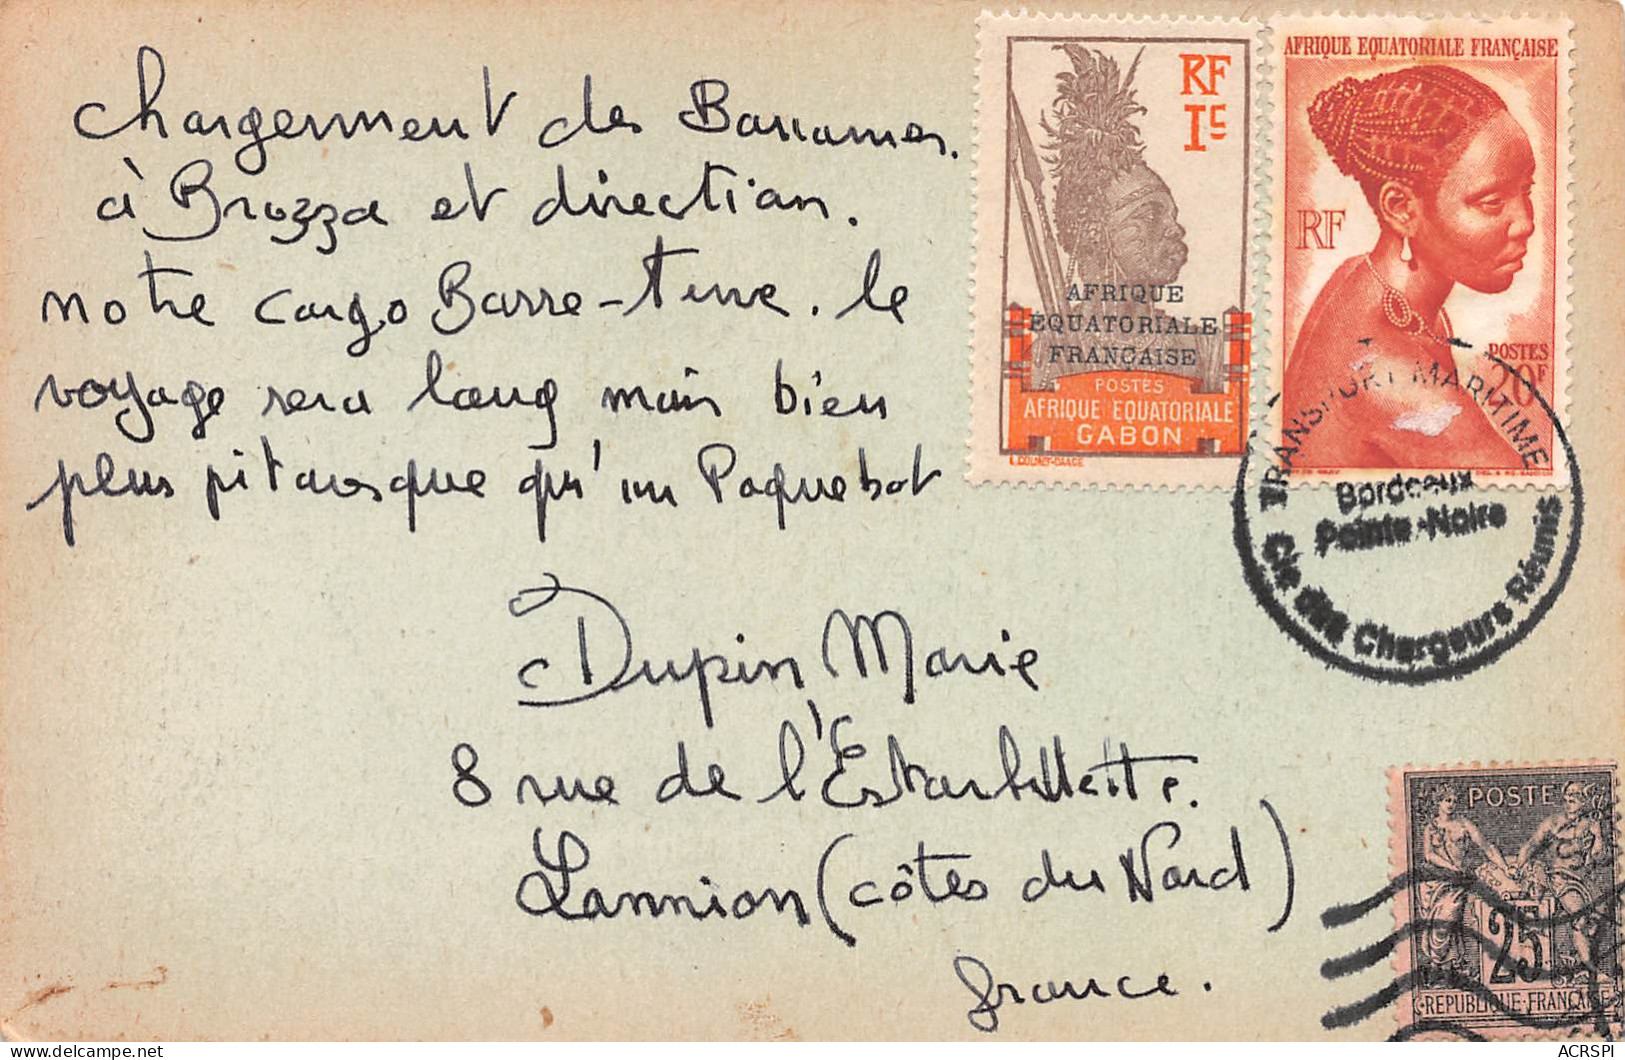 chargement des Bananes.
à Brazza et direction.
notre cargo Basse-Terre. le
voyage sera long mais bien
plus pitoresque qu'un Paquebot
Dupin Marie
8 rue de l'
Lannion (côtes du Nord)
france.
RF
1c
AFRIQUE
ÉQUATORIALE
FRANÇAISE
POSTES
AFRIQUE EQUATORIALE
GABON
AFRIQUE EQUATORIALE FRANÇAISE
RF
POSTES
20F
TRANSPORT MARITIME
Bordeaux
Pointe-Noire
Cie des Chargeurs Réunis
POSTE
25
REPUBLIQUE FRANÇAISE
ACRSPI